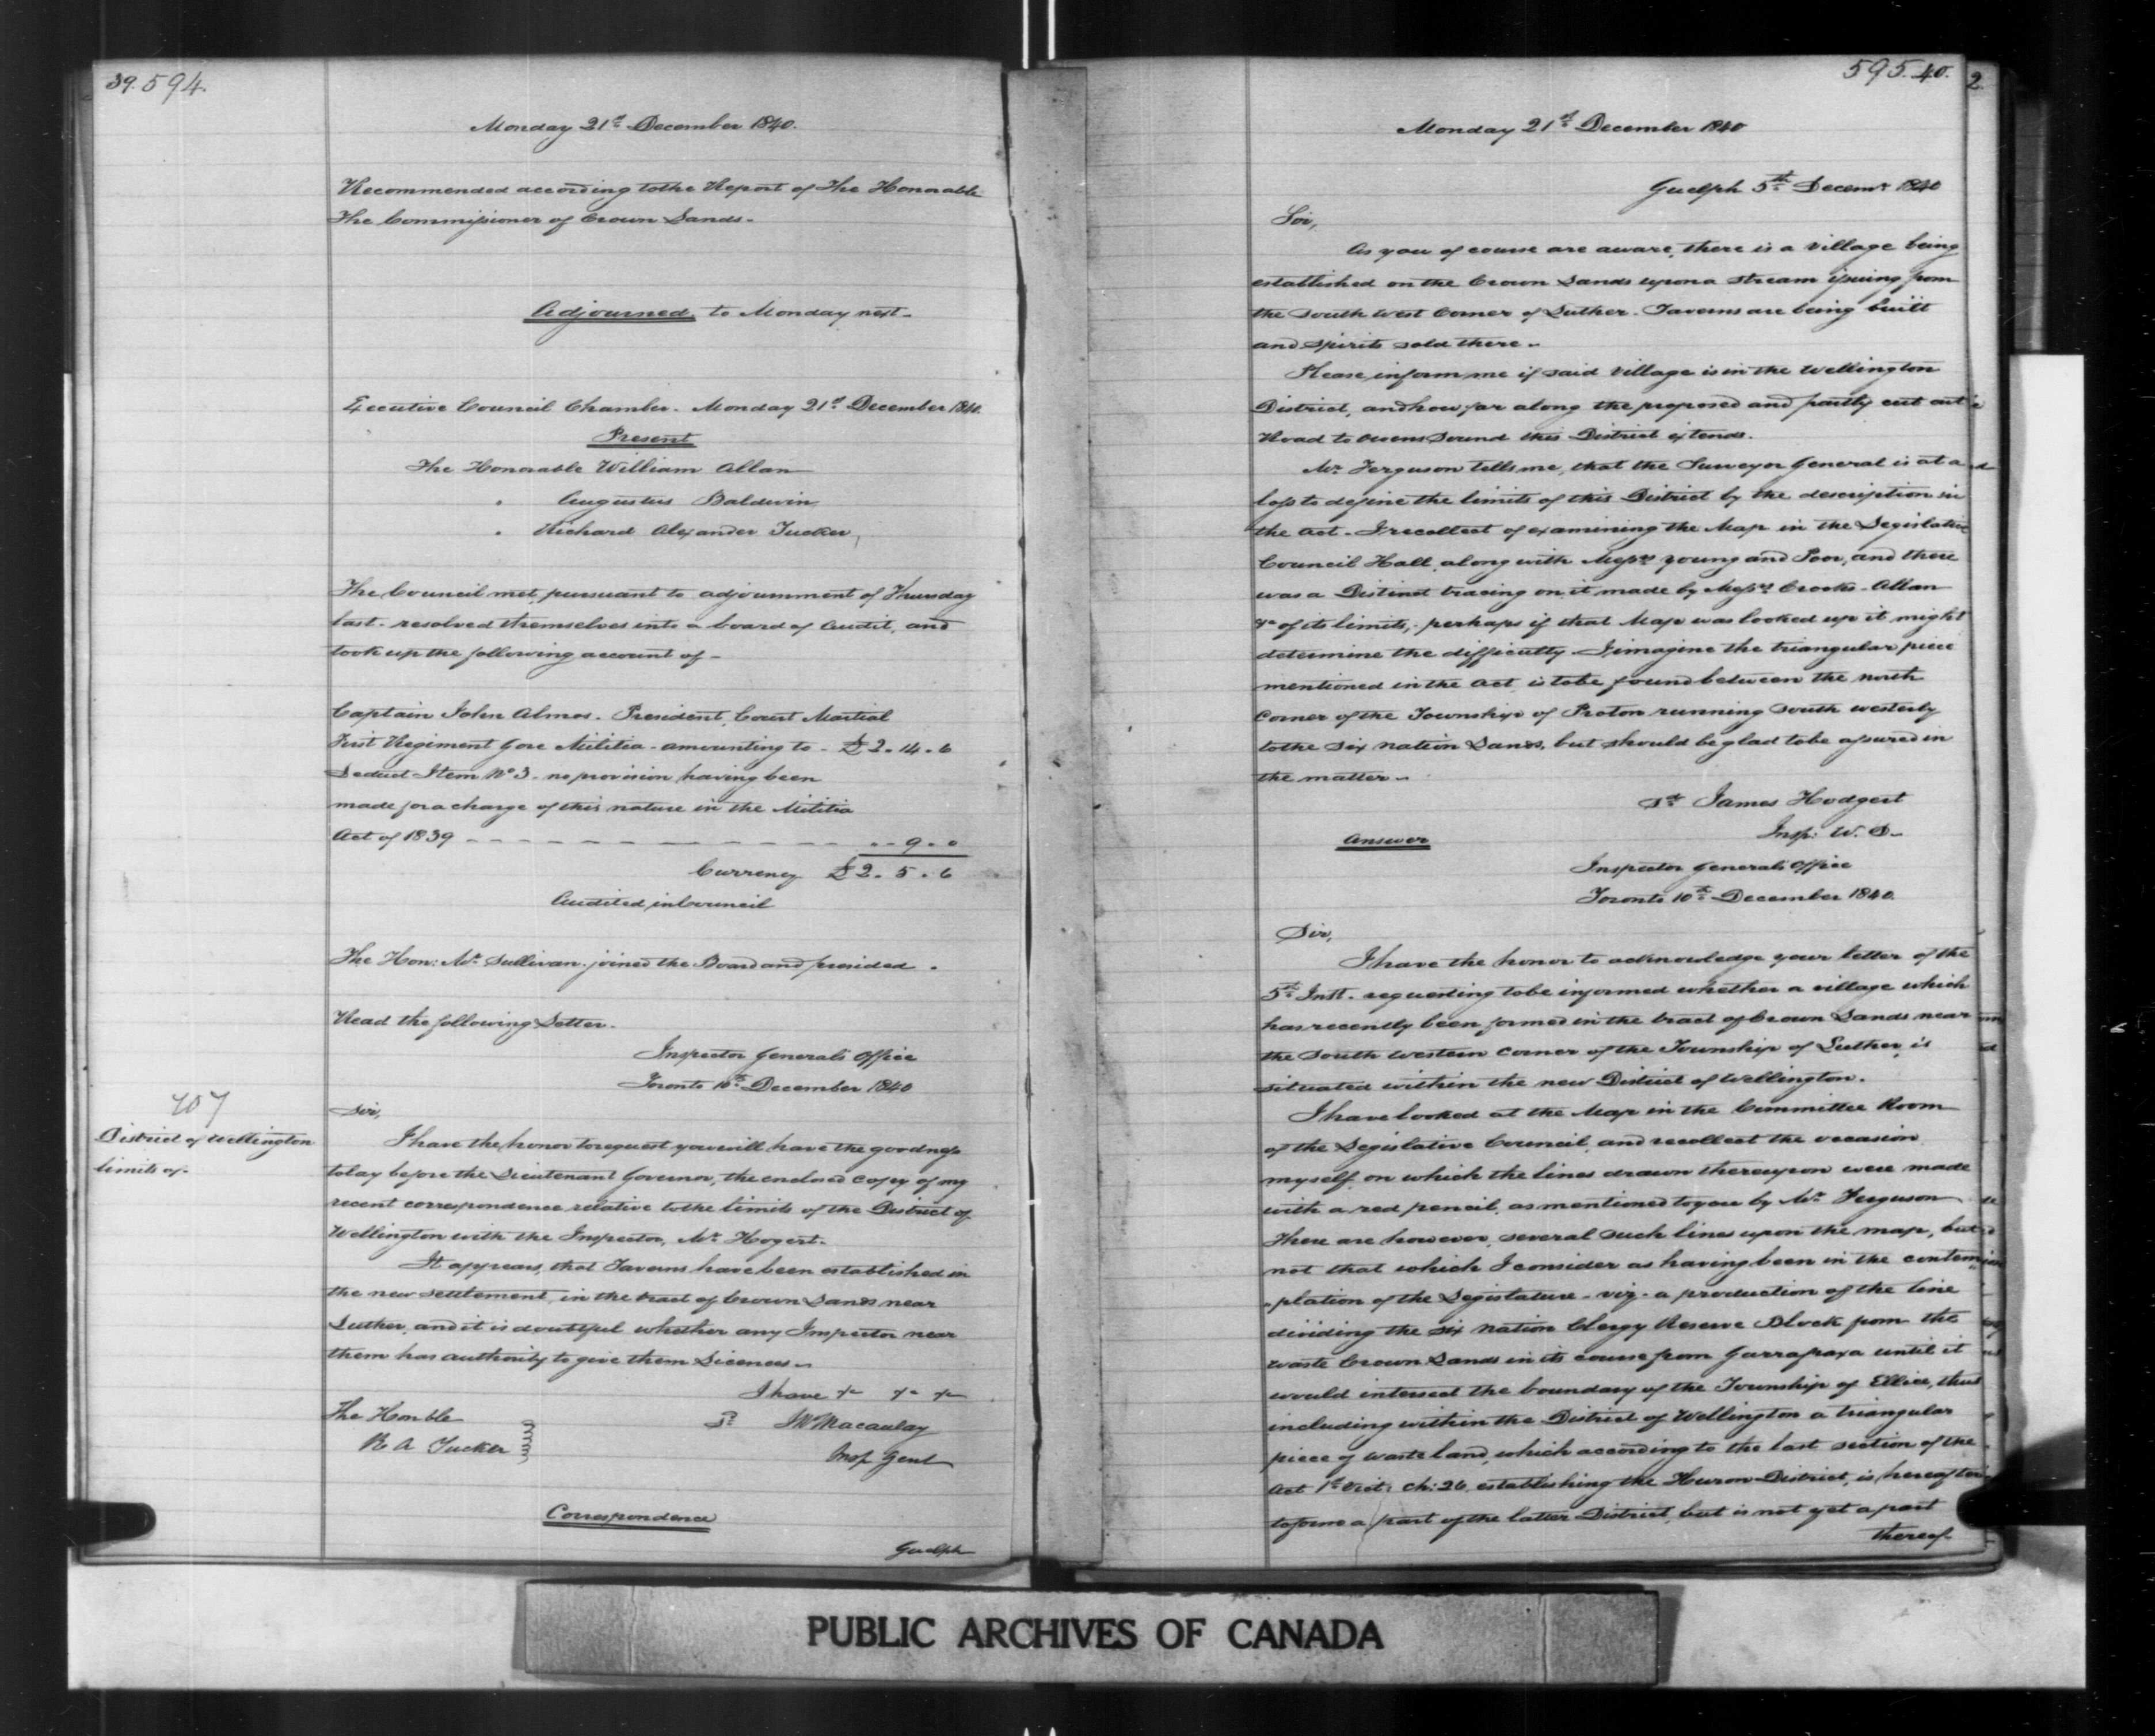 39. 594.
Monday 21st December 1840.
Recommended according to the Report of The Honorable
The Commissioner of Crown Lands-
Adjourned to Monday next-
Executive Council Chamber. Monday 21st December 1840.
Present
The Honorable William Allan
" Augustus Baldwin
" Richard Alexander Tucker,
The Council met, pursuant to adjournment of Thursday
last. resolved themselves into a board of Audit, and
took up the following account of-
Captain John Almos. President, Court Martial
First Regiment Gore Militia - amounting to - £2.14.6
Deduct Item No 3. no provision having been
made for a charge of this nature in the Militia
Act of 1839 - - - - - - - - - - - - - - ". 9. 0
Currency £2. 5. 6
Audited in Council
The Hon: Mr Sullivan joined the Board and presided.
Read the following Letter.
Inspector General's Office
Toronto 10th December 1840
707
District of Wellington
limits of-
Sir,
I have the honor to request you will have the goodness
to lay before the Lieutenant Governor, the enclosed copy of my
recent correspondence relative to the limits of the District of
Wellington with the Inspector, Mr Hogert.
It appears, that Taverns have been established in
the new settlement, in the tract of Crown Lands near
Luther, and it is doubtful whether any Inspector near
them has authority to give them Licences-
I have &c &c &c
The Honble
R A Tucker
Macaulay
Insp Genl
Correspondence
Guelph
595. 40.
2.
Monday 21st December 1840
Guelph 5th Decemr 1840
Sir,
As you of course are aware, there is a village being
established on the Crown Lands upon a stream issuing from
the South West Corner of Luther. Taverns are being built
and spirits sold there-
Please inform me if said Village is in the Wellington
District, and how far along the proposed and partly cut out
Road to Owens Sound this District extends.
Mr Ferguson tells me, that the Surveyor General is at a
loss to define the limits of this District by the description in
the Act. I recollect of examining the Map in the Legislative
Council Hall, along with Messrs Young and Poor, and there
was a Distinct tracing on it made by Messrs Crooks - Allan
&c of its limits; perhaps if that Map was looked up it might
determine the difficulty. I imagine the triangular piece
mentioned in the Act is to be found between the north
Corner of the Township of Proton running South westerly
to the Six Nation Lands, but should be glad to be assured in
the matter-
James Hodgert
Insp: W. D-
Answer
Inspector General's Office
Toronto 10th December 1840.
Sir,
I have the honor to acknowledge your letter of the
5th Inst. requesting to be informed whether a village which
has recently been formed in the tract of Crown Lands near
the South Western Corner of the Township of Luther, is
situated within the new District of Wellington.
I have looked at the Map in the Committee Room
of the Legislative Council, and recollect the occasion
myself, on which the lines drawn thereupon were made
with a red pencil, as mentioned to you by Mr Ferguson
There are however, several such lines upon the map, but
not that which I consider as having been in the contem
-plation of the Legislature - viz. a production of the line
dividing the Six Nation Clergy Reserve Block from the
waste Crown Lands in its course from Garrafraxa until it
would intersect the boundary of the Township of Ellice, thus
including within the District of Wellington a triangular
piece of waste land, which according to the last section of the
Act 1st Vict: Ch: 26, establishing the Huron District, is hereafter
to form a part of the latter District, but is not yet a part
thereof-
PUBLIC ARCHIVES OF CANADA